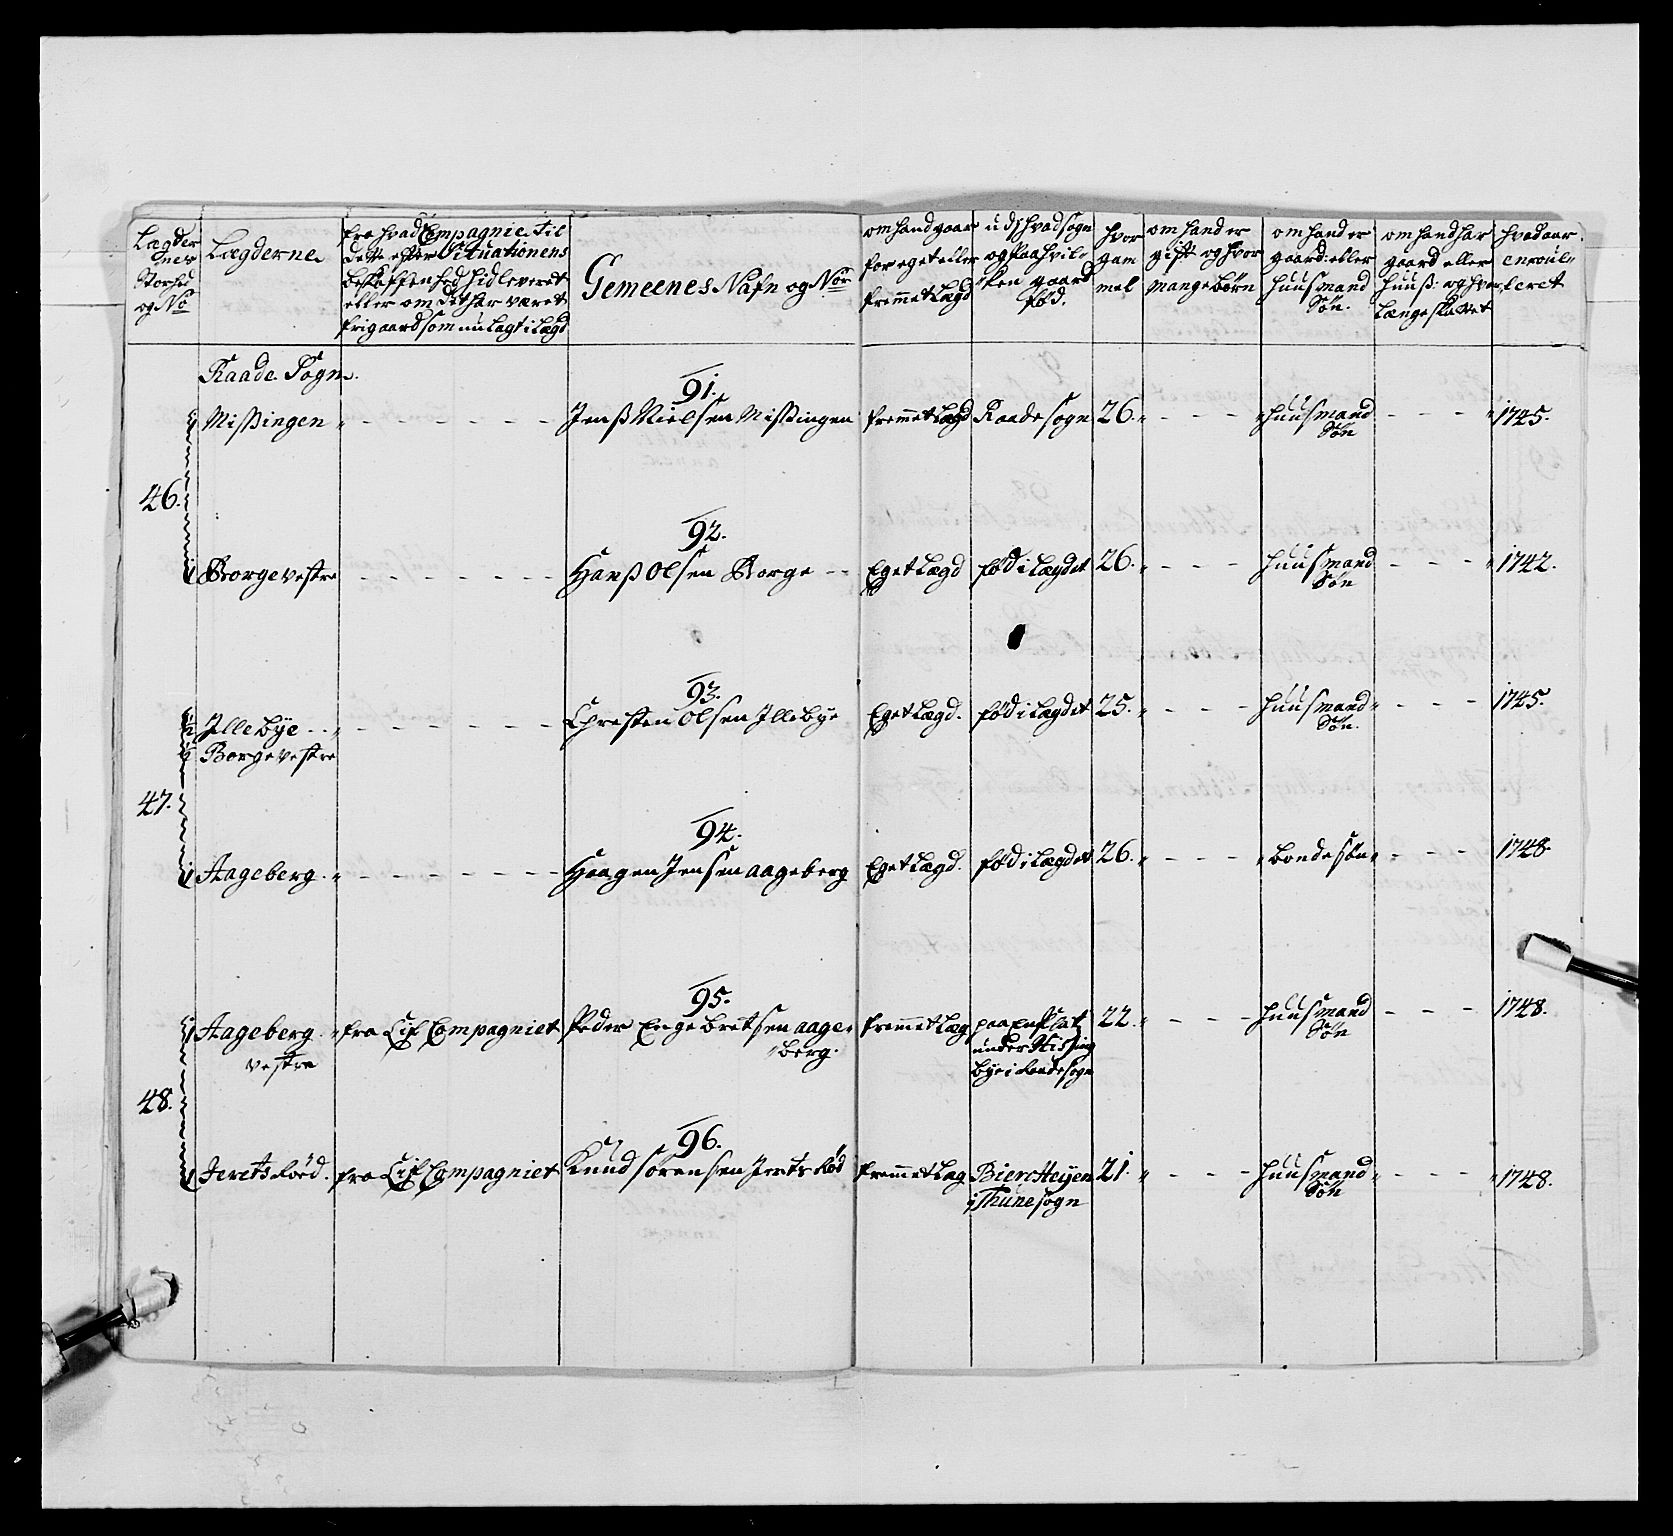 Lægder
nes
Storhed
og No
Lægderne
fra hvad Compagnie til
dette efter Situationens
beskaffenhed hidleveret
eller om dit har været
frigaard som nu lagt i Lægd
Gemeenes Nafn og Nor
om hand gaar
for eget eller
fremmet Lægd
ud i hvad sogn
og paa hvil-
ken gaard
fød.
hvor
gam
mel
om hand er
gift og hvor
mange børn
om hand er
gaard: eller
huusmand
Søn.
om hand har
gaard eller
huuß: og hvor
længe ✗
hvad aar
enroul-
leret
Raade Sogn.
91.
Missingen
Jenß Nielsen Missingen
fremmet Lægd
Raade sogn
26.
huusmand
Søn
1745.
46.
92.
1 Borge vestre
Hanß Olsen Borge
Eget Lægd
fød i Lægdet
26.
huusmand
Søn
1742.
93.
½ Jllebye
Christen Olsen Jllebye
Eget Lægd.
fød i Lægdet
25.
huusmand
Søn.
1745.
½ Borge vestre
47.
94.
1 Aageberg
Haagen Jensen aageberg
Eget Lægd.
fød i Lægdet
26.
bonde søn
1748.
95.
1 Aageberg
vestre
fra Lif Compagniet
Peder Engebretsen aage
berg.
fremmet Læg
paa en Plat
under
bye i sogn
22.
huusmand
Søn
1748.
48.
96.
1
fra Lif Compagniet
Knud Sørensen
fremmet Lag
i Thune sogn
21.
huusmand
Søn
1748.